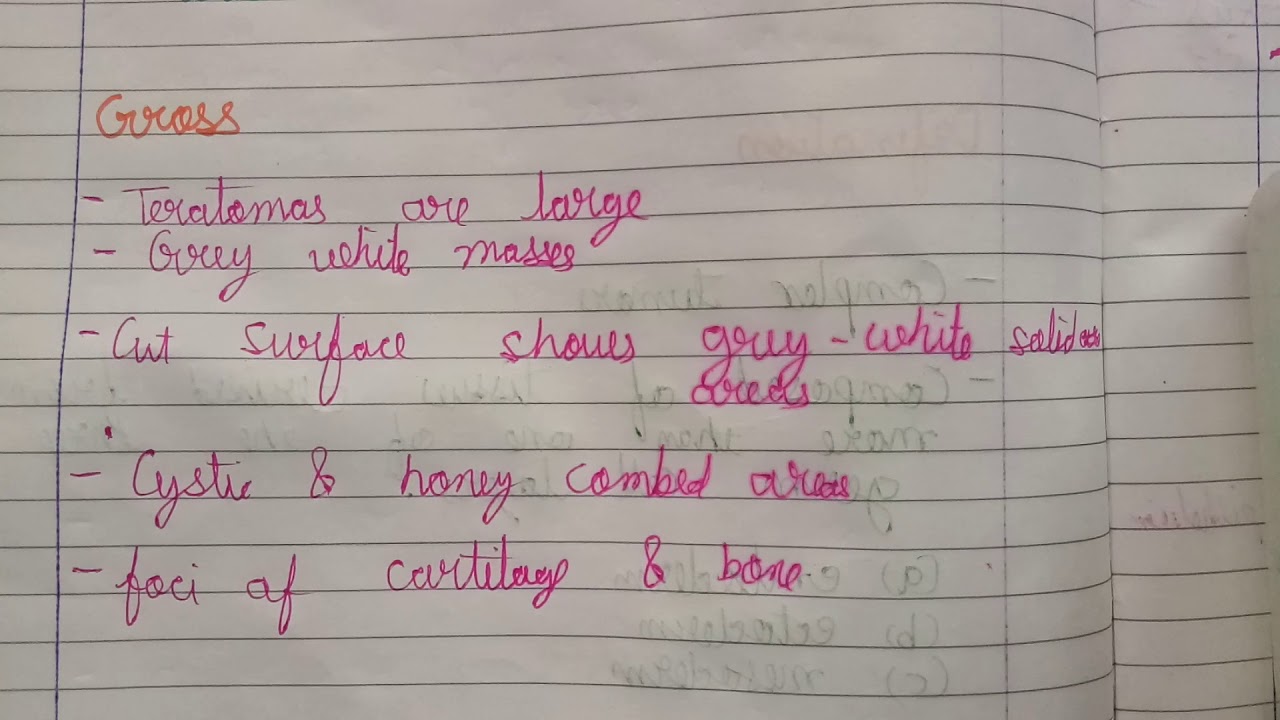 Gross
- Teratomas are large
- Grey white masses
- Cut surface shows grey-white solid
areas
- Cystic & honey combed areas
- foci of cartilage & bone.